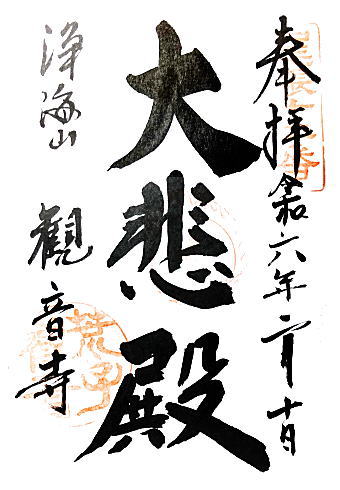 奉拝
令和六年二月十日
大悲殿
浄海山
観音寺